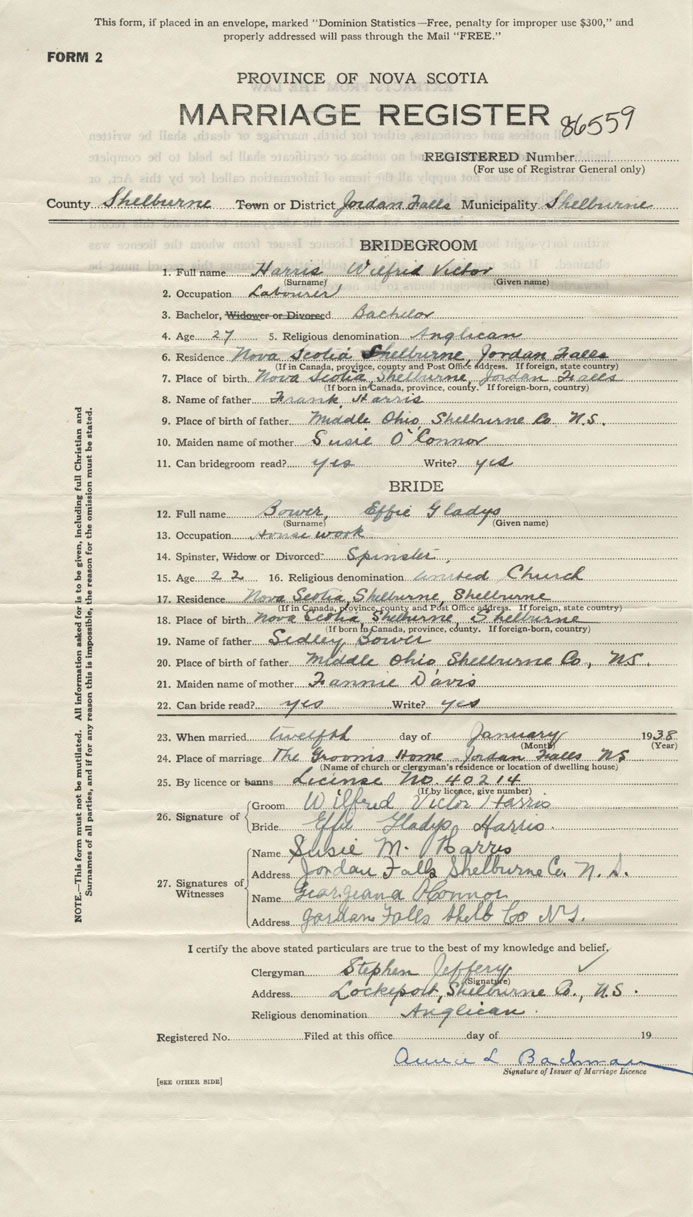 This form, if placed in an envelope, marked "Dominion Statistics—Free, penalty for improper use $300," and
properly addressed will pass through the Mail "FREE."
FORM 2
PROVINCE OF NOVA SCOTIA
MARRIAGE REGISTER 86559
REGISTERED Number
(For use of Registrar General only)
County Shelburne Town or District Jordan Falls Municipality Shelburne
BRIDEGROOM
1. Full name Harris Wilfred Victor
(Surname) (Given name)
2. Occupation Labourer
3. Bachelor, Widower or Divorced Bachelor
4. Age 27 5. Religious denomination Anglican
6. Residence Nova Scotia Shelburne, Jordan Falls
(If in Canada, province, county and Post Office address. If foreign, state country)
7. Place of birth Nova Scotia, Shelburne, Jordan Falls
(If born in Canada, province, county. If foreign-born, country)
8. Name of father Frank Harris
9. Place of birth of father Middle Ohio, Shelburne Co. N.S.
10. Maiden name of mother Susie O'Connor
11. Can bridegroom read? yes Write? yes
BRIDE
12. Full name Bower, Effie Gladys
(Surname) (Given name)
13. Occupation Housework
14. Spinster, Widow or Divorced Spinster
15. Age 22 16. Religious denomination United Church
17. Residence Nova Scotia, Shelburne, Shelburne
(If in Canada, province, county and Post Office address. If foreign, state country)
18. Place of birth Nova Scotia, Shelburne, Shelburne
(If born in Canada, province, county. If foreign-born, country)
19. Name of father Sedley Bower
20. Place of birth of father Middle Ohio Shelburne Co., N.S.
21. Maiden name of mother Fannie Davis
22. Can bride read? yes Write? yes
23. When married twelfth day of January 1938
(Month) (Year)
24. Place of marriage The Grooms Home Jordan Falls NS
(Name of church or clergyman's residence or location of dwelling house)
25. By licence or banns License No. 40214
(If by licence, give number)
26. Signature of
Groom Wilfred Victor Harris
Bride Effie Gladys Harris.
27. Signatures of Witnesses
Name Susie M. Harris
Address Jordan Falls Shelburne Co. N.S.
Name Georgeana O'Connor
Address Jordan Falls Shelb Co N.S.
I certify the above stated particulars are true to the best of my knowledge and belief.
Clergyman Stephen Jeffery
(Signature)
Address Lockeport, Shelburne Co., N.S.
Religious denomination Anglican.
Registered No. Filed at this office day of 19
Annie L Bachman
Signature of Issuer of Marriage Licence
[SEE OTHER SIDE]
NOTE.—This form must not be mutilated. All information asked for is to be given, including full Christian and
Surnames of all parties, and if for any reason this is impossible, the reason for the omission must be stated.